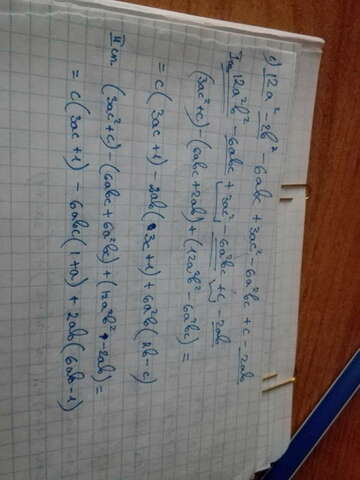 c) 12a² - 2b² - 6abc + 3ac² - 6a²bc + c - 2ab
I сп 12a²b² - 6abc + 3ac² - 6a²bc + c - 2ab
(3ac² + c) - (6abc + 2ab) + (12a²b² - 6a²bc) =
= c(3ac + 1) - 2ab(3c + 1) + 6a²b(2b - c)
II сп (3ac² + c) - (6abc + 6a²bc) + (12a²b² - 2ab) =
= c(3ac + 1) - 6abc(1 + a) + 2ab(6ab - 1)